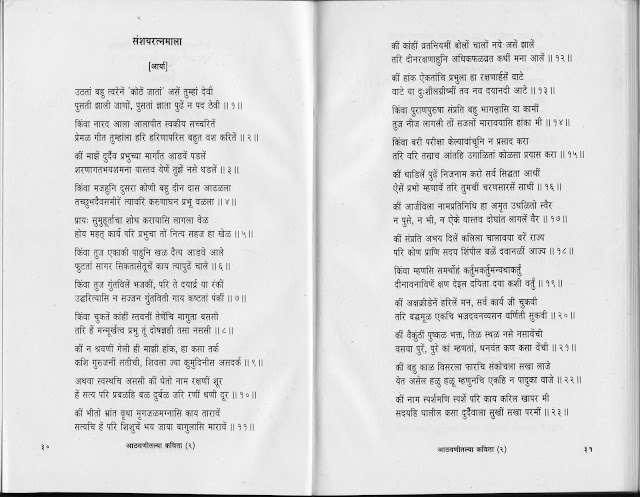 संशयरत्नमाला
[आर्या]
उठतां बहु त्वरेनें 'कोठें जातां' असें तुम्हां देवी
पुसती झाली जाणों, पुसतां ज्ञाता पुढें न पद ठेवी ॥ १ ॥
किंवा नारद आला आलापीत स्वकीय सच्चरितें
प्रेमळ गीत तुम्हांला हरि हरिणापरिस बहुत वश करितें ॥ २ ॥
कीं माझें दुर्दैव प्रभुच्या मार्गांत आडवें पडलें
शरणागतभयशमना यास्तव येणें तुझें नसे घडलें ॥ ३ ॥
किंवा मजहुनि दुसरा कोणी बहु दीन दास आढळला
तच्छुभदैवसमीरें त्यावरि करुणाघन प्रभू वळला ॥ ४ ॥
प्रायः सुमुहूर्ताचा शोध करायासि लागला वेळ
होय महत् कार्य परि प्रभुचा तों नित्य सहज हा खेळ ॥ ५ ॥
किंवा तुज एकाकी पाहुनि खळ दैत्य आडवे आले
फुटतां सागर सिकतासेतूचें काय त्यापुढें चाले ॥ ६ ॥
किंवा तुज गुंतविलें भजकीं, परि ते दयाई या रंकीं
उद्धरित्यासि न सज्जन गुंतविती गाय कष्टतां पंकीं ॥ ७ ॥
किंवा चुकतें कांहीं स्तवनीं तेणेंचि मागुता बससी
तरि हें मन्मूर्खत्व प्रभु तूं दोषज्ञही तसा नससी ॥ ८ ॥
कीं न श्रवणीं गेली ही माझी हांक, हा कसा तर्क
कशि गुरुजनीं सतीची, शिवला ज्या कुमुदिनीस असदर्क ॥ ९ ॥
अथवा स्वस्थचि अससी कीं घेतो नाम रक्षणीं शूर
हें सत्य परि प्रबळहि बळ दुर्बळ जरि रणीं धणी दूर ॥ १० ॥
कीं भीतो भ्रांत वृथा मृगजळमग्नासि काय तारावें
सत्यचि हें परि शिशुचें भय जाया बागुलासि मारावें ॥ ११ ॥
३० आठवणीतल्या कविता (२)
कीं कांहीं व्रतनियमीं बोलों चालों नये असें झालें
तरि दीनरक्षणाहुनि अधिकफळव्रत कधीं मना आलें ॥ १२ ॥
कीं हांक ऐकतांचि प्रभुला हा रक्षणार्हसें वाटे
वाटे या दुःशीलग्रीष्मीं तव नव दयानदी आटे ॥ १३ ॥
किंवा पुराणपुरुषा संप्रति बहु भागलासि या कामीं
तुज नीज लागली तों सजलों मारावयासि हांका मी ॥ १४ ॥
किंवा बरी परीक्षा केल्यावांचूनि न प्रसाद करा
तरि वरि तसाच आंतहि उगाळितां कोळसा प्रयास करा ॥ १५ ॥
कीं धाडिलें पुढें निजनाम करो सर्व सिद्धता आधीं
ऐसें प्रभो म्हणावें तरि तुमचीं चरणसारसें साधीं ॥ १६ ॥
कीं आर्जविला नामप्रतिनिधि हा अमृत उधळितो स्वैर
न पुसे, न भी, न ऐके यास्तव दोघांत लागलें वैर ॥ १७ ॥
कीं संप्रति अभय दिलें कलिला चालावया बरें राज्य
परि कोण प्राणि सदय शिंपील बळें दवानळीं आज्य ॥ १८ ॥
किंवा म्हणसि समर्थोहं कर्तुमकर्तुमन्यथाकर्तुं
दीनावनाविणें क्षण देईल दयिता दया कशी वर्तूं ॥ १९ ॥
कीं अक्षक्रीडेनें हरिलें मन, सर्व कार्य जी चुकवी
तरि बद्धमूळ एकचि भजदवनव्यसन वर्णिती सुकवी ॥ २० ॥
कीं वैकुंठीं पुष्कळ भक्त, तिळ स्थळ नसे नसावेंची
वसवा पुरें, पुरे कां म्हणतां, धनवंत कण कसा वेंची ॥ २१ ॥
कीं बहु काळ विसरला फारचि संकोचला सखा लाजे
येत असेल हळु हळू म्हणुनचि एकहि न पादुका वाजे ॥ २२ ॥
कीं नाम स्पर्शमणि स्पर्शे परि काय करिल खापर मी
सदयहि घालील कसा दुर्दैवाला सुखीं सखा परमीं ॥ २३ ॥
आठवणीतल्या कविता (२) ३१